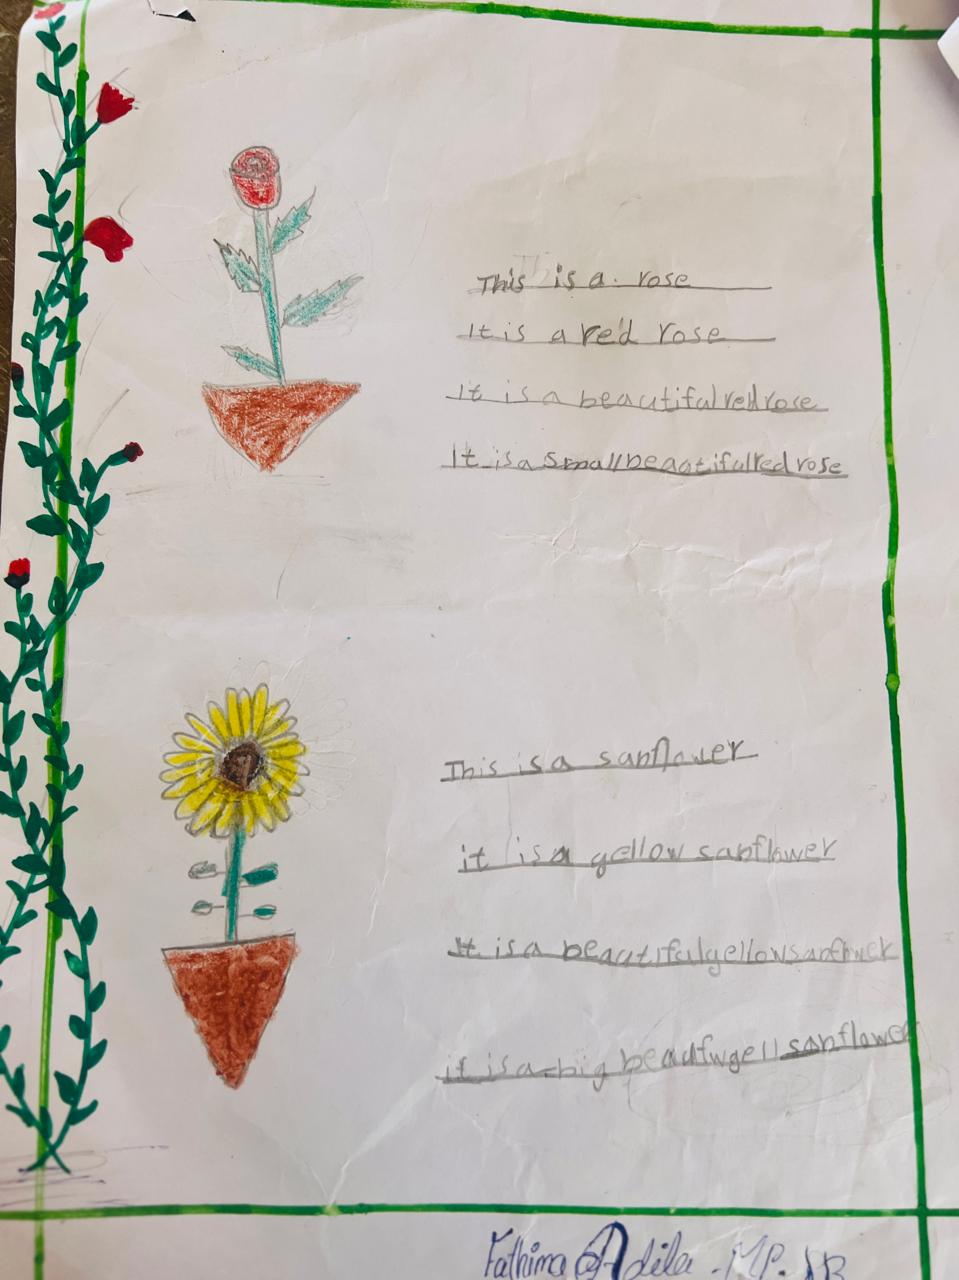 This is a rose
It is a red rose
It is a beautiful red rose
It is a small beautiful red rose
This is a sanflower
it is a yellow sanflower
It is a beautiful yellow sanflower
it is a big yell sanflower
Fathima Adila . MP.